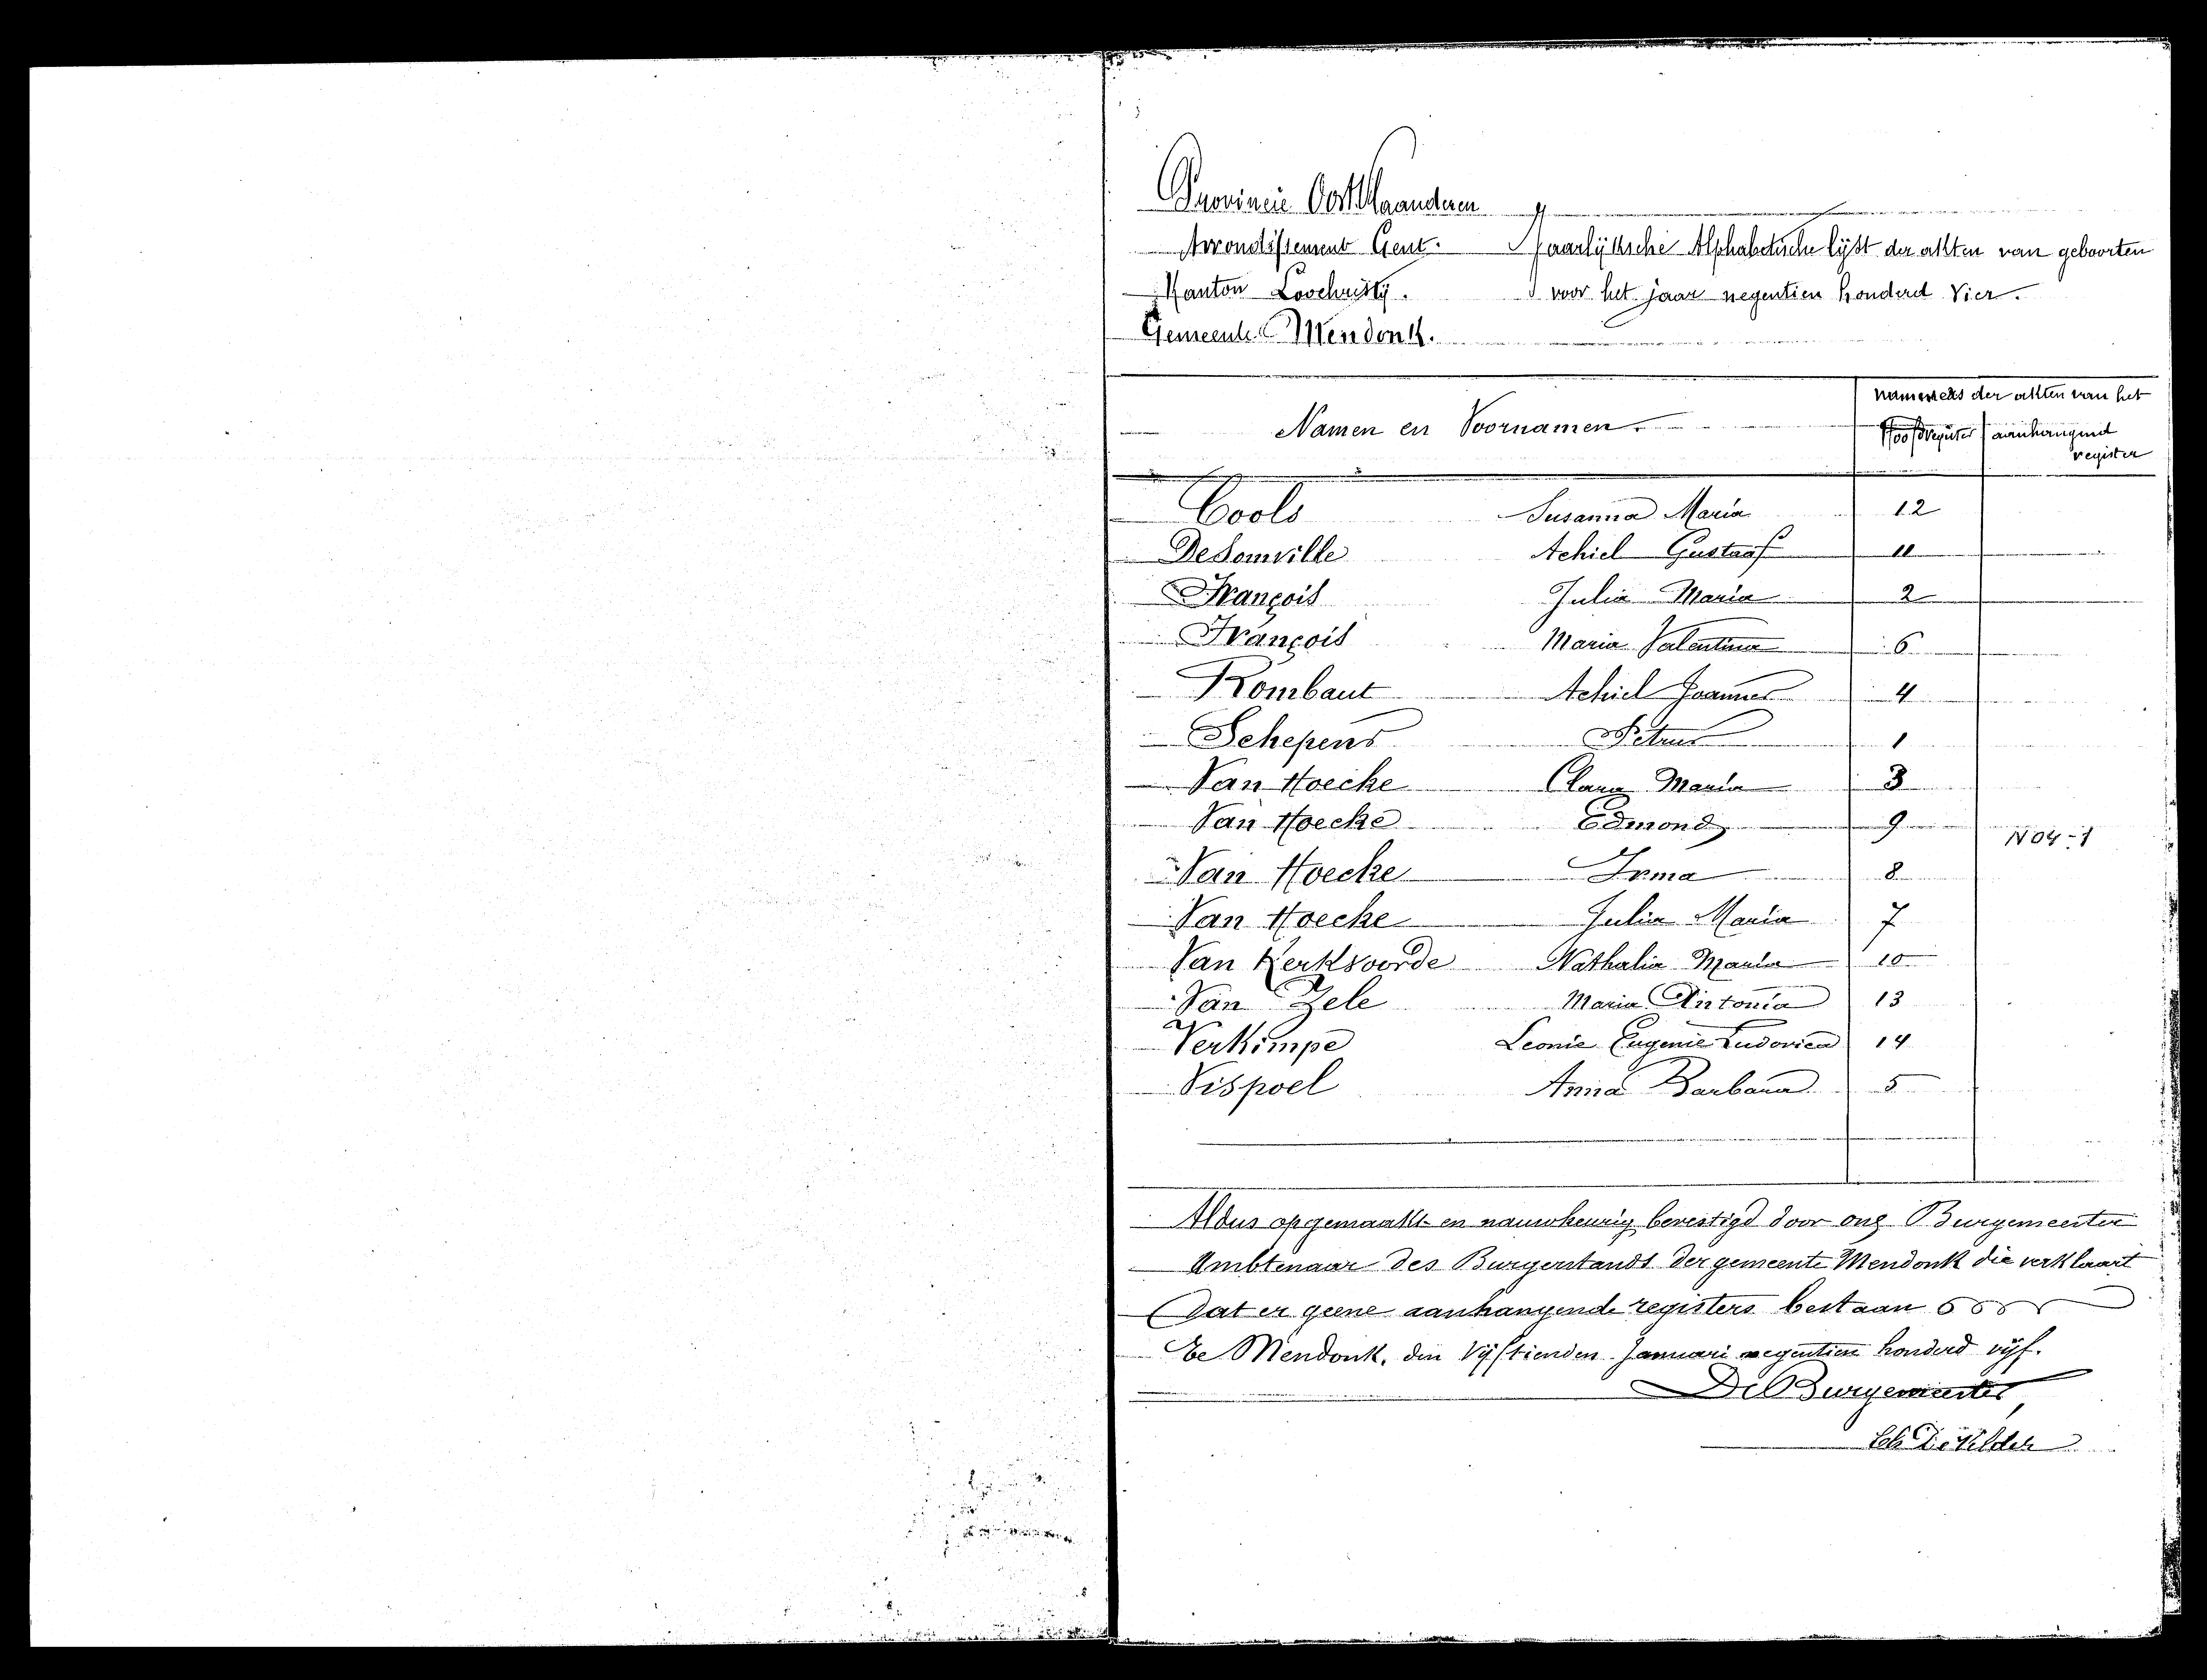 Provincie Oostvlaanderen
Arrondissement Gent. Jaarlijksche Alphabetische lijst der akten van geboorten
Kanton Loochristij. voor het jaar negentien honderd Vier.
Gemeente Mendonk.
Namen en Voornamen. nummers der akten van het
Hoofdregister aanhangend
register
Cools Susanna Maria 12
Desomville Achiel Gustaaf 11
François Julia Maria 2
François Maria Valentina 6
Rombaut Achiel Joannes 4
Schepens Petrus 1
Van Hoecke Clara Maria 3
Van Hoecke Edmond 9
N04-1
Van Hoecke Irma 8
Van Hoecke Julia Maria 7
Van Kerksvoorde Nathalia Maria 10
Van Zele Maria Antonia 13
Verkimpe Leonie Eugenie Ludovica 14
Vispoel Anna Barbara 5
Aldus opgemaakt en nauwkeurig bevestigd door ons Burgemeester
Ambtenaar des Burgerstands der gemeente Mendonk die verklaart
Dat er geene aanhangende registers bestaan
Te Mendonk, den Vijftienden Januari negentien honderd vijf.
De Burgemeester,
De Vilder